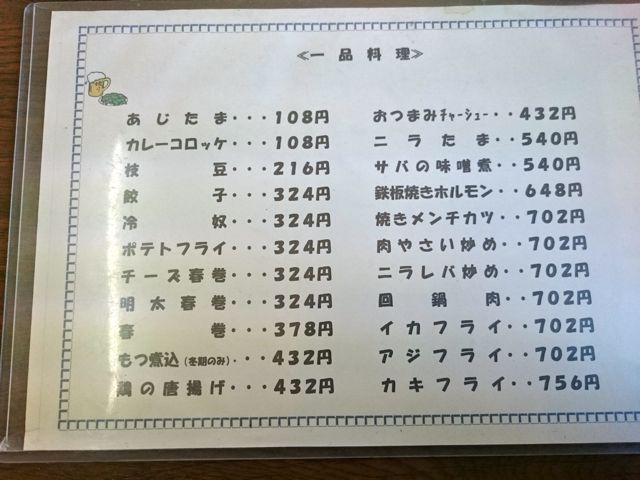 ≪一品料理≫
あじたま・・・108円
カレーコロッケ・・・108円
枝豆・・・216円
餃子・・・324円
冷奴・・・324円
ポテトフライ・・・324円
チーズ春巻・・・324円
明太春巻・・・324円
春巻・・・378円
もつ煮込(冬期のみ)・・・432円
鶏の唐揚げ・・・432円
おつまみﾁｬｰｼｭｰ・・432円
ニラたま・・540円
サバの味噌煮・・540円
鉄板焼きホルモン・・648円
焼きメンチカツ・・702円
肉やさい炒め・・702円
ニラレバ炒め・・702円
回鍋肉・・702円
イカフライ・・702円
アジフライ・・702円
カキフライ・・756円